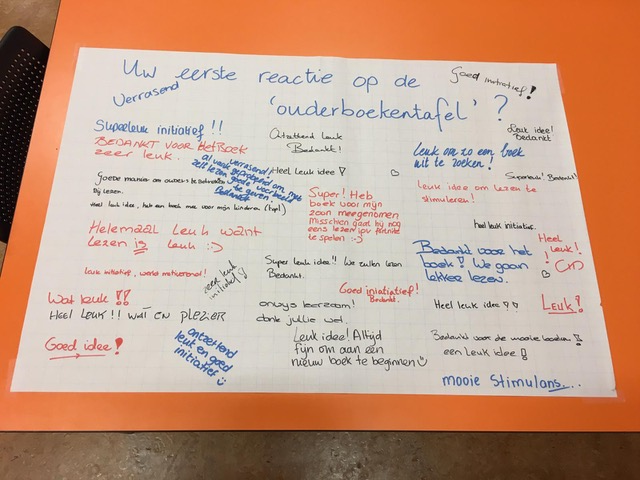 Uw eerste reactie op de
'ouderboekentafel' ?
Goed initiatief!
Verrassend
Superleuk initiatief !!
BEDANKT VOOR HET BOEK
zeer leuk.
Ontzettend leuk
Bedankt!
Leuk idee!
Bedankt
Leuk om zo een boek
uit te zoeken!
Verrassend!
Al vaak geprobeerd om
zelf lezen goede voorbeeld
te geven.
Bedankt
Heel leuk idee !
Superleuk! Bedankt!
Goede manier om ouders te betrekken
bij lezen.
Leuk idee om lezen te
stimuleren!
Super! Heb
boek voor mijn
zoon meegenomen
Misschien gaat hij nog
eens lezen ipv fortnite
te spelen :-)
veel leuk idee, heb een boek mee voor mijn kinderen
heel leuk initiatief.
Helemaal leuk want
lezen is leuk :-)
Heel
leuk!
Bedankt voor het
boek! We gaan
lekker lezen.
Super leuk idee!! We zullen lezen
Bedankt.
leuk initiatief, werkt motiverend!
zeer leuk
initiatief!
Goed iniatief!
Bedankt.
Wat leuk !!
HEEL LEUK!! WAT EN PLEZIER
onwijs leerzaam!
dank jullie wel.
Heel leuk idee
Leuk!
Goed idee!
ontzettend
leuk en goed
initiatief
Leuk idee! Altijd
fijn om aan een
nieuw boek te beginnen
Bedankt voor de mooie boeken
een leuk idee !
mooie stimulans...